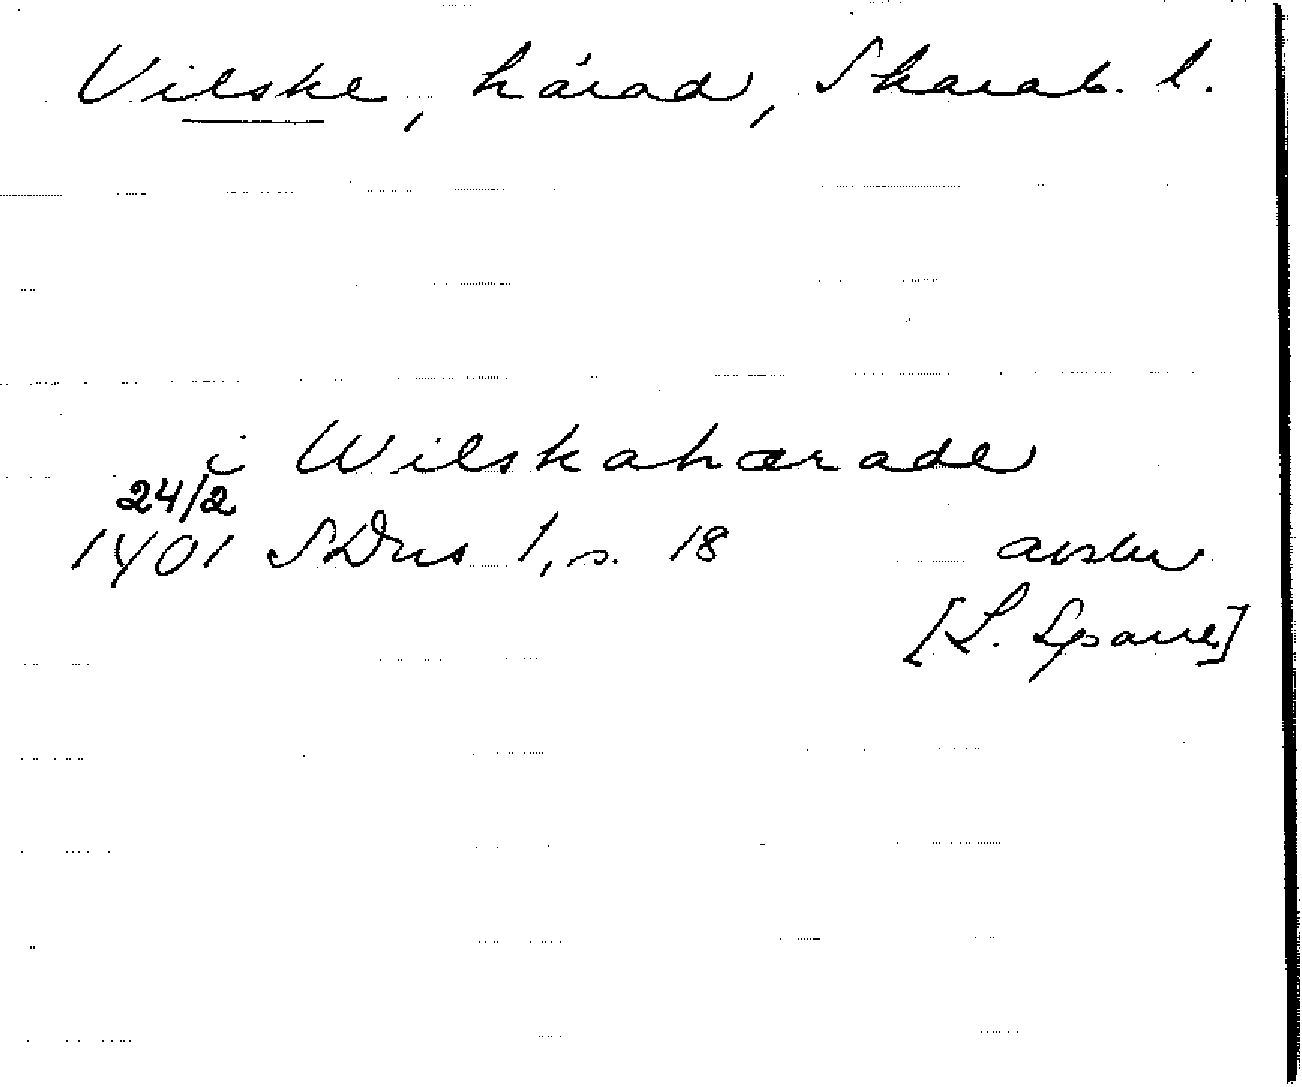 Vilske, härad, Skarab. l.
i Wilskahærade
24/2
1401 SDns 1, s. 18 avskr
[L. Sparre]